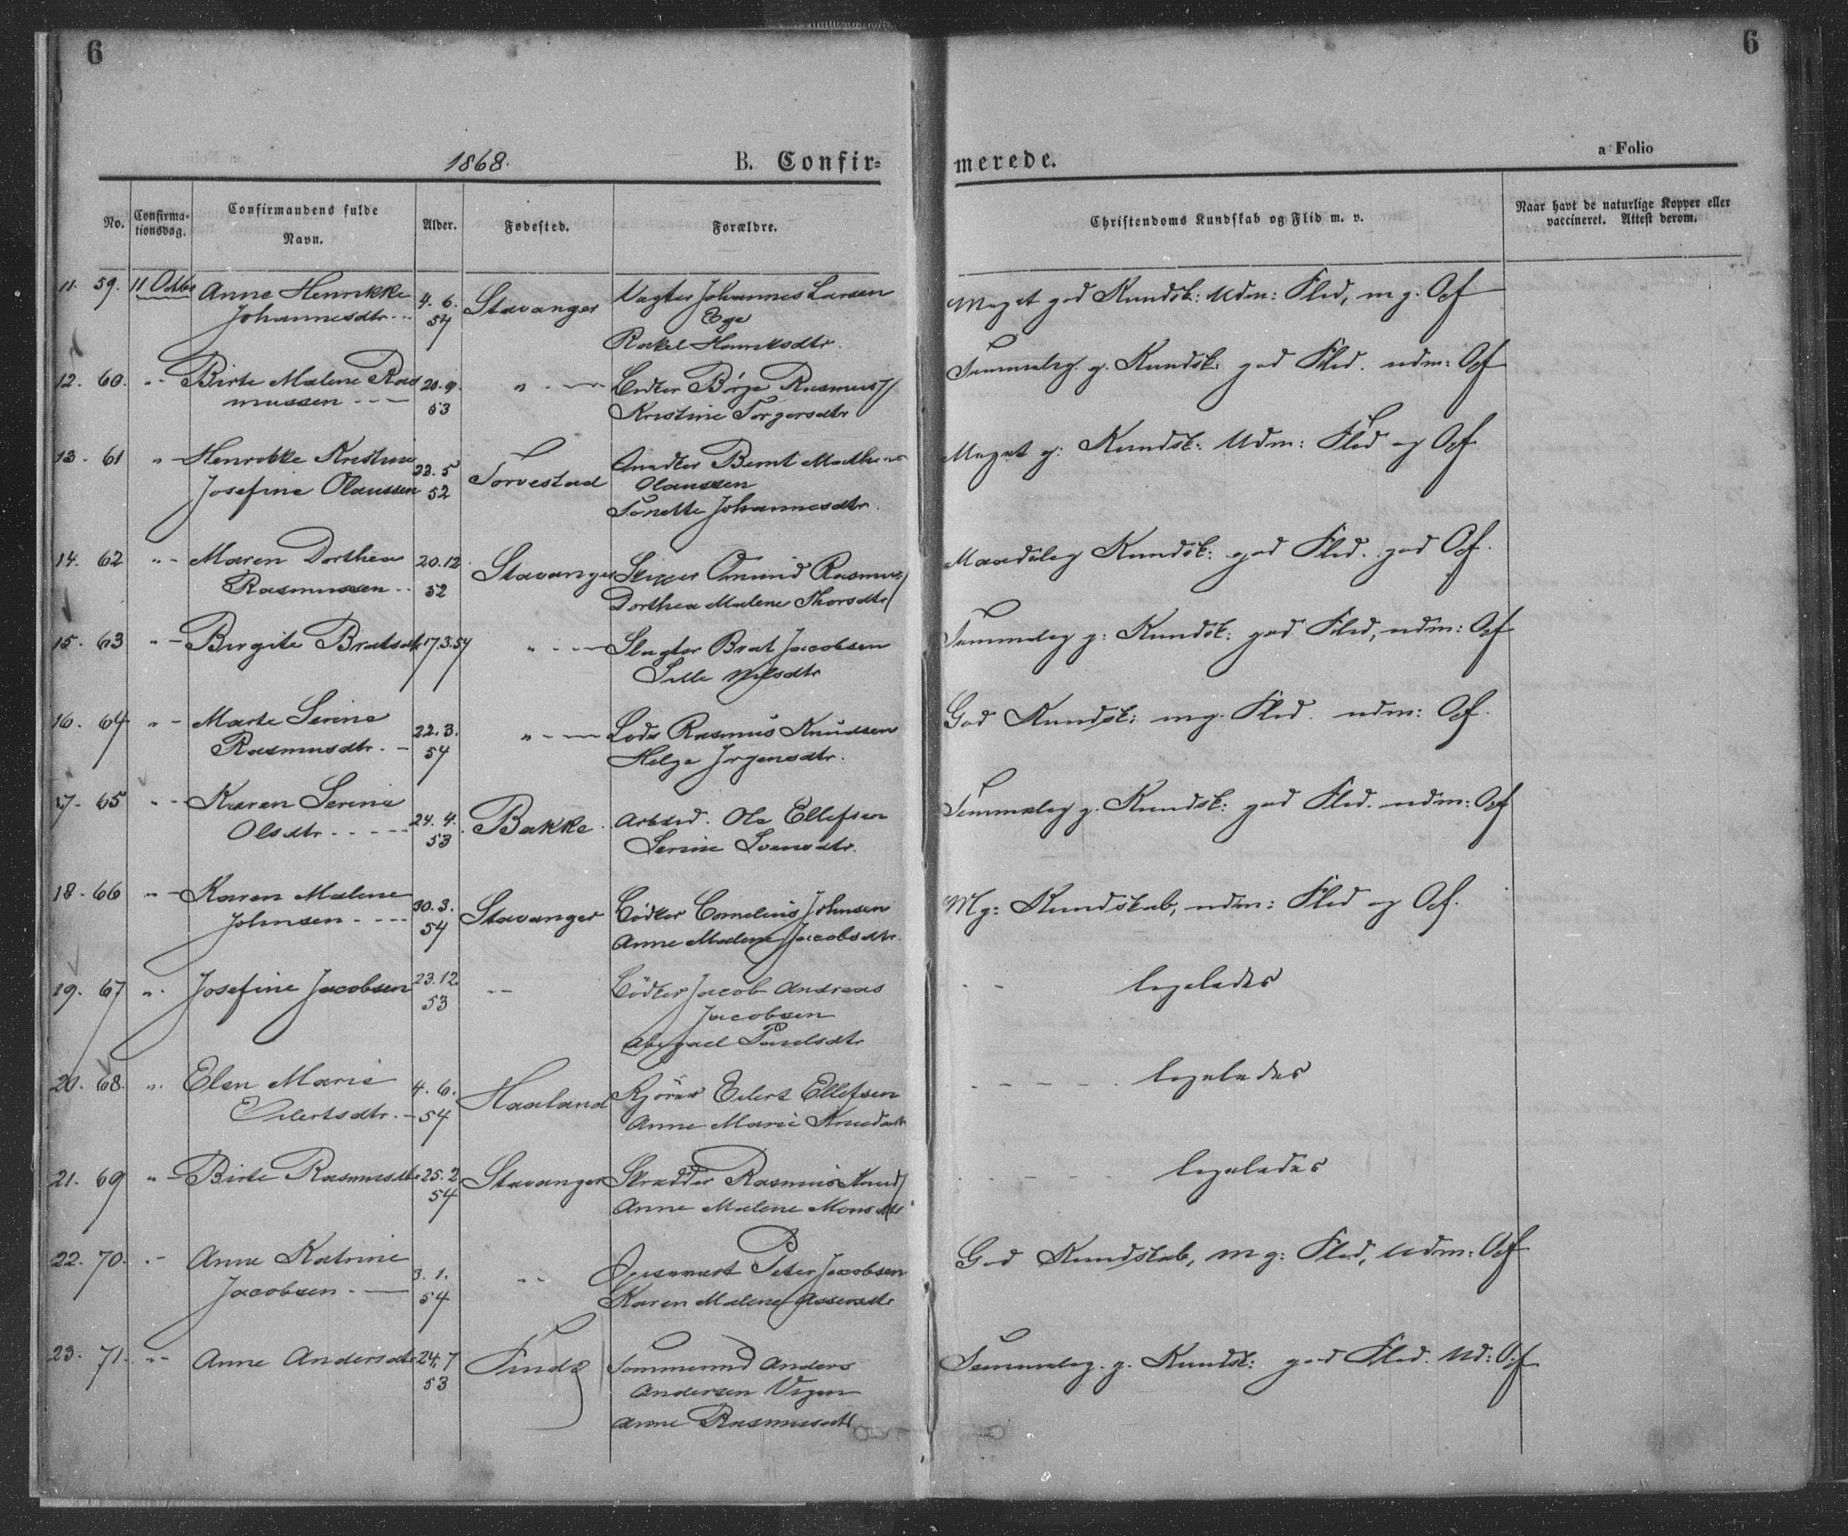 6
6
1868.
B. Confir-
merede.
a Folio
No.
Confirma-
tionsdag.
Confirmandens fulde
Navn.
Alder.
Fødested.
Forældre.
Christendoms Kundskab og Flid m. v.
Naar havt de naturlige Kopper eller
vaccineret. Attest derom.
11. 59. 11 Octbr Anne Henrikke 4. 6. Stavanger Vagter Johannes Larsen Meget god Kundsk: Udm: Flid, mg. Opf
Johannesdtr. - - 54 Ege
Rakel Henriksdtr.
12. 60. " - Birte Malene Ras 20. 9. " - — Bødker Børge Rasmuss/ Temmelig g. Kundsk: god Flid. udm: Opf
mussen - - — 53 Kristine Torgersdtr
13. 61 " - Henrikke Kristine 23. 5 Torvestad Bernt Mathias Meget g: Kundsk: Udm: Flid og Opf
Josefine Olaussen 52 Olaussen
Tonette Johannesdtr.
14. 62 " - Maren Dorthea 20. 12 Stavanger Omund Rasmus/ Maadelig Kundsk: god Flid. god Opf.
Rasmussen - - 52 Dorthea Malene Thorsdtr/
15. 63 " - Birgite Bratsdtr 17.3.54 " - - — Slagter Brat Jacobsen Temmelig g: Kundsk: god Flid, udm: Opf
Sille Nilsdtr
16. 64 " - Marte Serine 22. 3. " - — Lods Rasmus Knudsen God Kundsk: mg. Flid. udm: Opf.
Rasmusdtr. - 54 Helge Jørgensdtr.
17. 65 " - Karen Serine 24. 4. Bakke. Arbeid. Ole Ellefsen Temmelig g. Kundsk: god Flid. udm: Opf
Olsdtr - - - - 53 Serine Svensdtr.
18. 66 " - Karen Malene 30. 3. Stavanger Bødker Cornelius Johnsen Mg: Kundskab, udm: Flid og Opf.
Johnsen - - - - 54 Anne Malene Jacobsdtr.
19. 67 " . Josefine Jacobsen 23. 12 - - Bødker Jacob Andreas - - ligeledes
53 Jacobsen
Abigael Paulsdtr
20. 68. " . Elen Marie 4. 6. Haaland Eilert Ellefsen - - - - ligeledes
Eilertsdtr. - 54 Anne Marie Knudsdtr
21. 69 " - Birte Rasmusdtr 25. 2 Stavanger Skrædder Rasmus Knud/ - - - - ligeledes
54 Anne Malene Monsdtr
22. 70. " - Anne Katrine 3. 1. " - Peter Jacobsen God Kundskab, mg: Flid, Udm: Opf
Jacobsen - — 54 Karen Malene Assersdtr
23. 71. " - Anne Andersdtr 24. 7 Findø Tømmermd Anders Temmelig. g. Kundsk: god Flid. Ud: Opf
53 Andersen Vigen
Anne Rasmusdtr